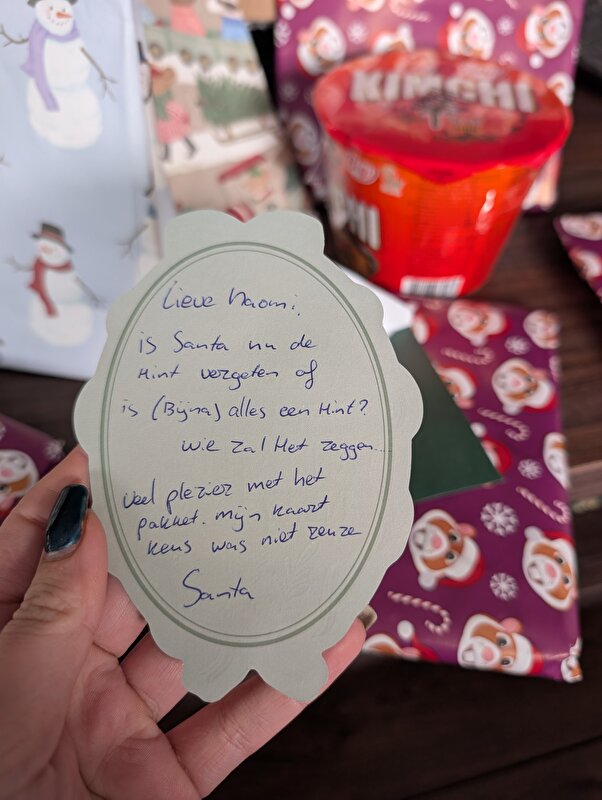 KIMCHI
HI
Lieve Naomi,
is Santa nu de
Hint vergeten of
is (Bijna) alles een Hint?
wie zal Het zeggen...
veel plezier met het
pakket. mijn kaart
keus was niet
Santa